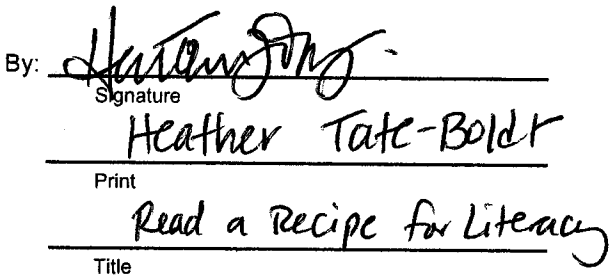 By:
Signature
Heather Tate-Boldt
Print
Read a Recipe for Literacy
Title